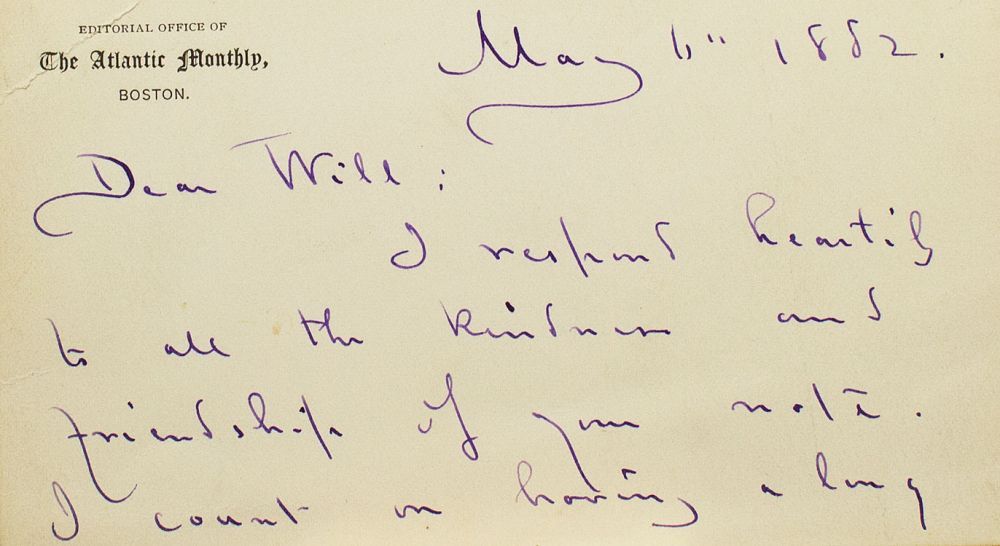 EDITORIAL OFFICE OF
The Atlantic Monthly,
BOSTON.
May 1882.
Dear Will:
I respond heartily
to all the kindness and
friendship of your note.
I count on having a long